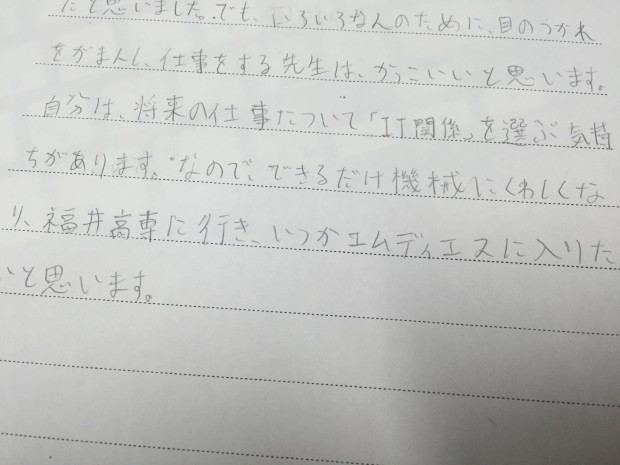 たと思いました。でも、いろいろな人のために、目のつかれ
をがまんし、仕事をする先生は、かっこいいと思います。
自分は、将来の仕事について「IT関係」を選ぶ気持
ちがあります。なので、できるだけ機械にくわしくな
り、福井高専に行き、いつかエムディエスに入りた
いと思います。